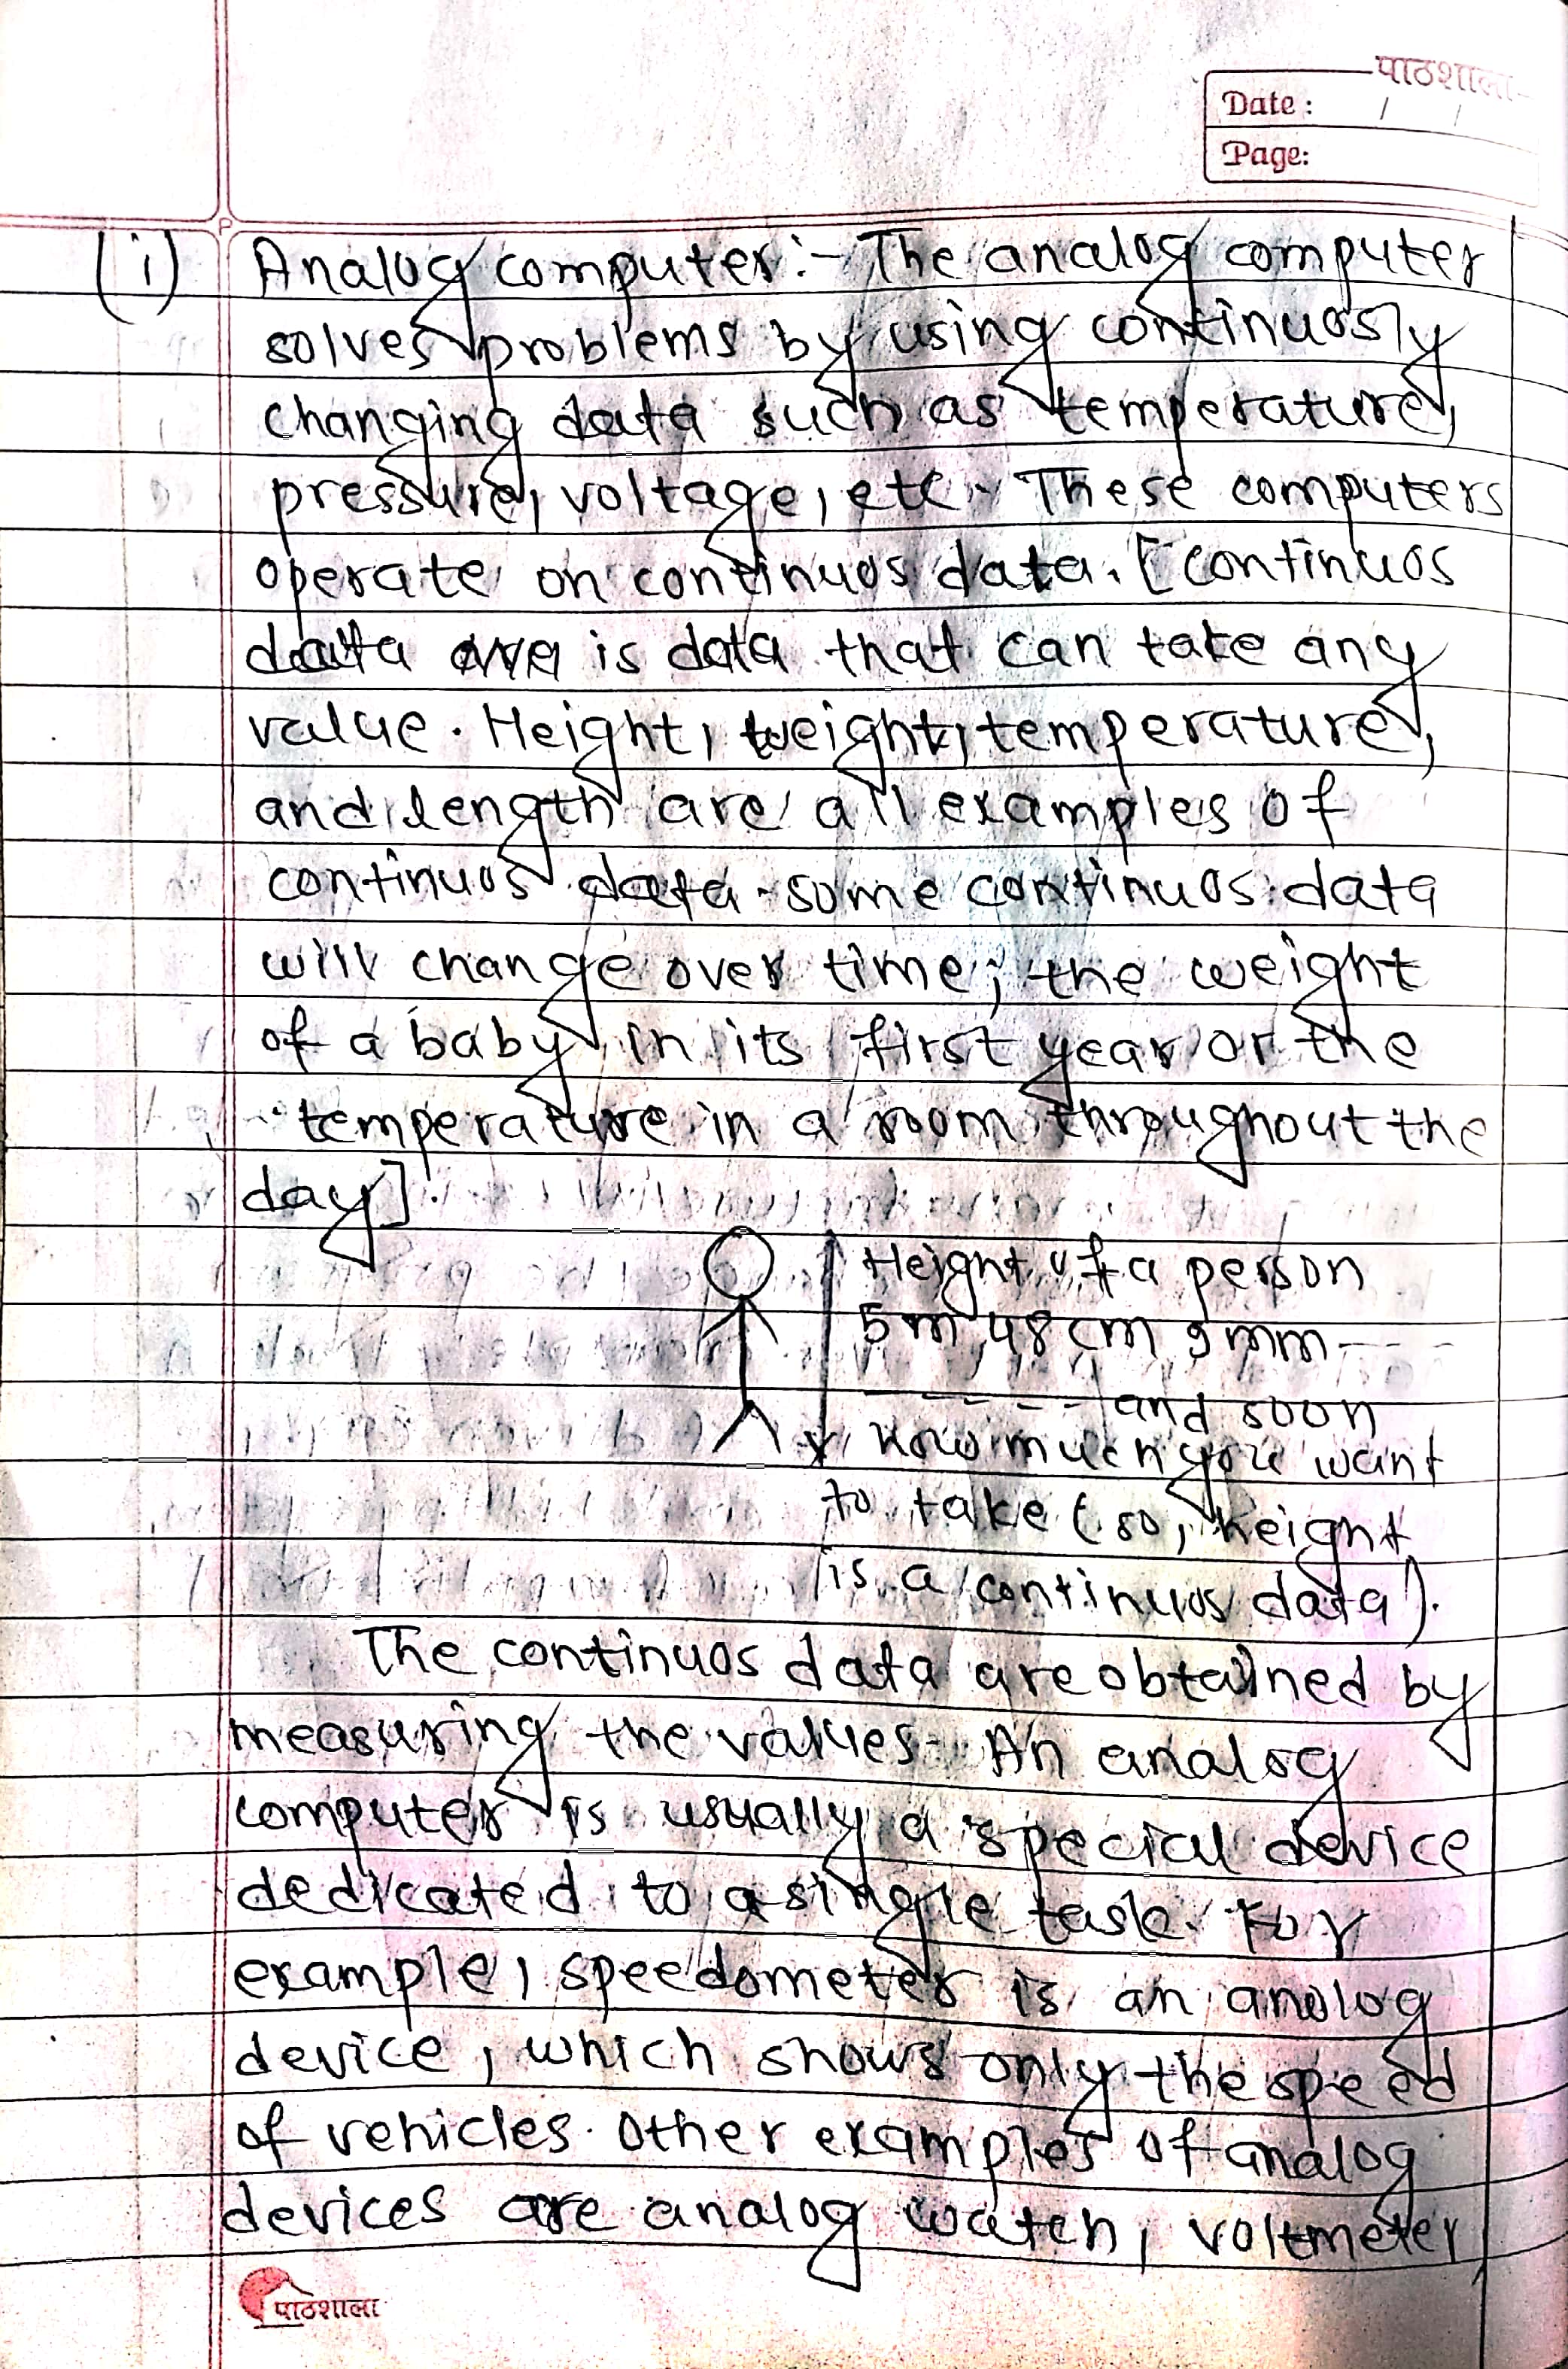 पाठशाला
Date : / /
Page:
(i) Analog computer:- The analog computer
solves problems by using continuosly
changing data such as temperature,
pressure, voltage, etc. These computers
operate on continuos data. [continuos
data is data that can take any
value. Height, weight, temperature,
and length are all examples of
continuos data. some continuos data
will change over time; the weight
of a baby in its first year or the
temperature in a room throughout the
day]
Height of a person
5m 48cm 9mm - - -
- - - - and soon
how much you want
to take (so, height
is a continuos data).
The continuos data are obtained by
measuring the values. An analog
computer is usually a special device
dedicated to a single task. For
example, speedometer is an analog
device, which shows only the speed
of vehicles. Other examples of analog
devices are analog watch, voltmeter,
पाठशाला